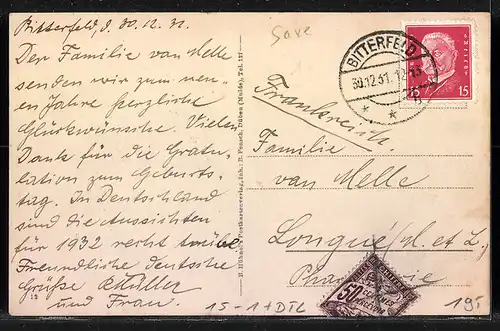 Bitterfeld, d. 30.12.31.
Der Familie van Melle
senden wir zum neu-
en Jahre herzliche
Glückwünsche. Vielen
Dank für die Gratu-
lation zum Geburts-
tag. In Deutschland
sind die Aussichten
für 1932 recht trübe
Freundliche deutsche
Grüße
und Frau.
12
Save
BITTERFELD
30.12.31.
15 15
Frankreich.
Familie
van Melle
Longué, M. et L.
50
15-1+DTL
195